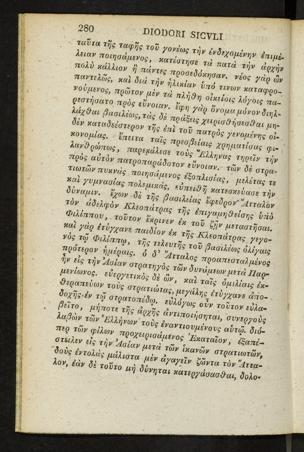 280 DIODORI SICVLI
ταῦτα τῆς ταφῆς τοῦ γονέως τὴν ἐνδεχομένην ἐπιμέ-
λειαν ποιησάμενος, κατέστησε τὰ κατὰ τὴν ἀρχὴν
πολὺ κάλλιον ἢ πάντες προσεδόκησαν. νέος γὰρ ὢν
παντελῶς, καὶ διὰ τὴν ἡλικίαν ὑπό τινων καταφρο-
νούμενος, πρῶτον μὲν τὰ πλήθη οἰκείοις λόγοις πα-
ρεστήσατο πρὸς εὔνοιαν. ἔφη γὰρ ὄνομα μόνον διηλ-
λάχθαι βασιλέως, τὰς δὲ πράξεις χειρισθήσεσθαι μη-
δὲν καταδεέστερον τῆς ἐπὶ τοῦ πατρὸς γενομένης οἰ-
κονομίας. ἔπειτα ταῖς πρεσβείαις χρηματίσας φι-
λανθρώπως, παρεκάλεσε τοὺς Ἕλληνας τηρεῖν τὴν
πρὸς αὐτὸν πατροπαράδοτον εὔνοιαν. τῶν δὲ στρα-
τιωτῶν πυκνὰς ποιησάμενος ἐξοπλισίας, μελέτας τε
καὶ γυμνασίας πολεμικὰς, εὐπειθῆ κατεσκεύασε τὴν
δύναμιν. ἔχων δὲ τῆς βασιλείας ἔφεδρον Ἄτταλον
τὸν ἀδελφὸν Κλεοπάτρας τῆς ἐπιγαμηθείσης ὑπὸ
Φιλίππου, τοῦτον ἔκρινεν ἐκ τοῦ ζῆν μεταστῆσαι.
καὶ γὰρ ἐτύγχανε παιδίον ἐκ τῆς Κλεοπάτρας γεγο-
νὸς τῷ Φιλίππῳ, τῆς τελευτῆς τοῦ βασιλέως ὀλίγαις
πρότερον ἡμέραις. ὁ δ' Ἄτταλος προαπεσταλμένος
ἦν εἰς τὴν Ἀσίαν στρατηγὸς τῶν δυνάμεων μετὰ Παρ-
μενίωνος. εὐεργετικὸς δὲ ὢν, καὶ ταῖς ὁμιλίαις ἐκ-
θεραπεύων τοὺς στρατιώτας, μεγάλης ἐτύγχανε ἀπο-
δοχῆς ἐν τῷ στρατοπέδῳ. εὐλόγως οὖν τοῦτον εὐλα-
βεῖτο, μήποτε τῆς ἀρχῆς ἀντιποιήσηται, συνεργοὺς
λαβὼν τῶν Ἑλλήνων τοὺς ἐναντιουμένους αὐτῷ. διό-
περ τῶν φίλων προχειρισάμενος Ἑκαταῖον, ἐξαπέ-
στειλεν εἰς τὴν Ἀσίαν μετὰ τῶν ἱκανῶν στρατιωτῶν,
δοὺς ἐντολὰς μάλιστα μὲν ἀγαγεῖν ζῶντα τὸν Ἄττα-
λον, ἐὰν δὲ τοῦτο μὴ δύνηται κατεργάσασθαι, δολο-